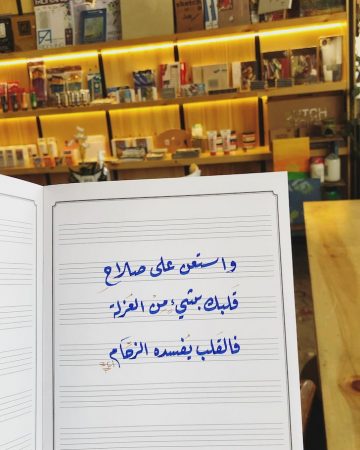 واستعن على صلاح
قلبك بشيءٍ من العزلة
فالقلب يُفسده الزحام
sketch